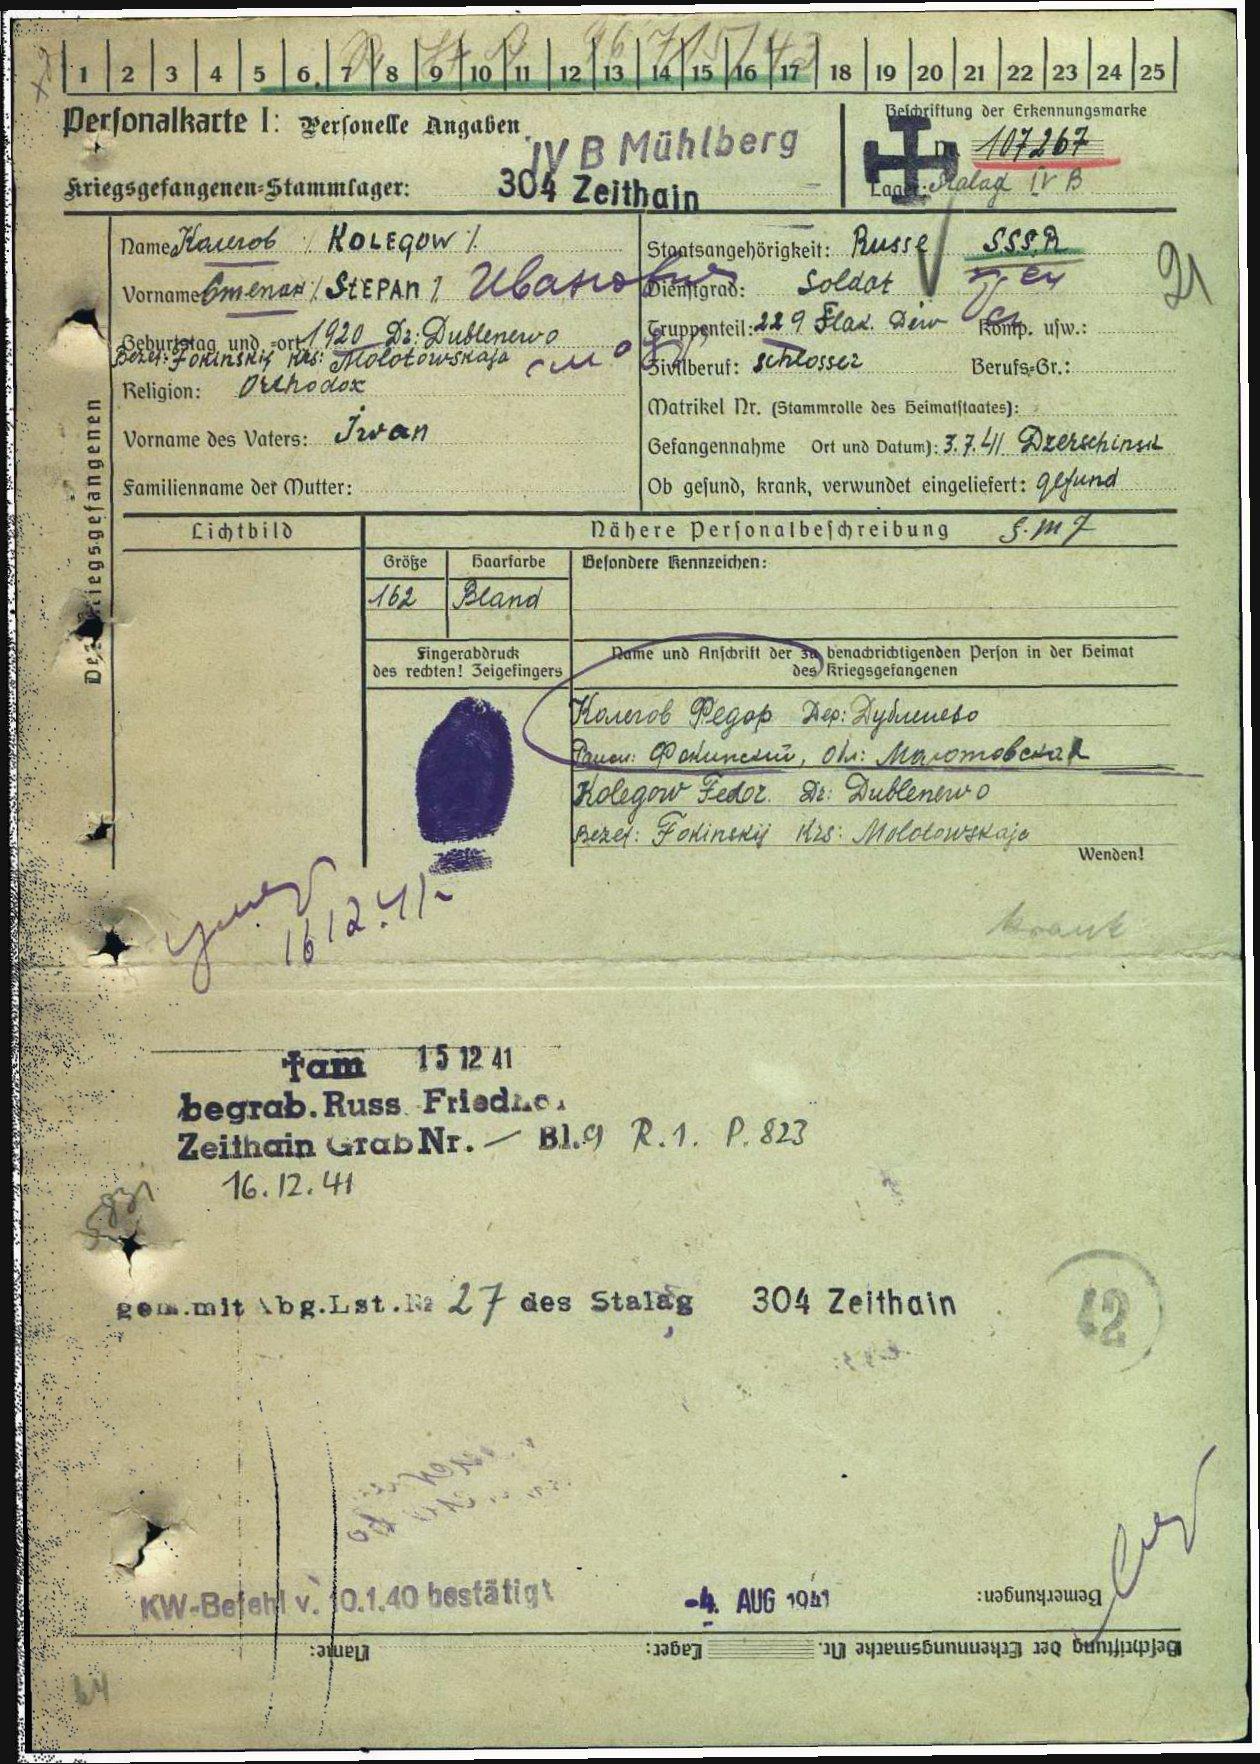 1 2 3 4 5 6 7 8 9 10 11 12 13 14 15 16 17 18 19 20 21 22 23 24 25
Personalkarte I: Personelle Angaben
Beschriftung der Erkennungsmarke
IV B Mühlberg
107267
Kriegsgefangenen-Stammlager: 304 Zeithain
Lager: Stalag IV B
Des Kriegsgefangenen
Name Колегов /. KOLEGOW /.
Vorname Степан /. STEPAN /. Иванович
Geburtstag und -ort 1920 Dr: Dublenewo
Bezef: Fokinskij Krs: Molotowskaja
Religion: Orthodox
Vorname des Vaters: Iwan
Familienname der Mutter:
Staatsangehörigkeit: Russe SSSR
Dienstgrad: Soldat
Truppenteil: 229 Flak. Diw Komp. usw.:
Zivilberuf: schlosser Berufs-Gr.:
Matrikel Nr. (Stammrolle des Heimatstaates):
Gefangennahme Ort und Datum): 3.7.41 Dzerschinsk
Ob gesund, krank, verwundet eingeliefert: gesund
21
Lichtbild
Nähere Personalbeschreibung
Größe Haarfarbe Besondere Kennzeichen:
162 Bland
Fingerabdruck
des rechten! Zeigefingers
Name und Anschrift der zu benachrichtigenden Person in der Heimat
des Kriegsgefangenen
Колегов Федор Дер: Дубленево
Фокинский, обл: Молотовская
Kolegow Fedor. Dr: Dublenewo
Bezef: Fokinskij Krs: Molotowskaja
Wenden!
умер
16 12.41
krank
† am 15 12 41
begrab. Russ. Friedhof
Zeithain Grab Nr. — Bl. 9 R. 1. P. 823
16.12.41
gem. mit Abg. Lst. Nr 27 des Stalag 304 Zeithain
42
KW-Befehl v. 10.1.40 bestätigt
-4. AUG 1941
Bemerkungen:
Beschriftung der Erkennungsmarke Nr. Lager: Name:
64